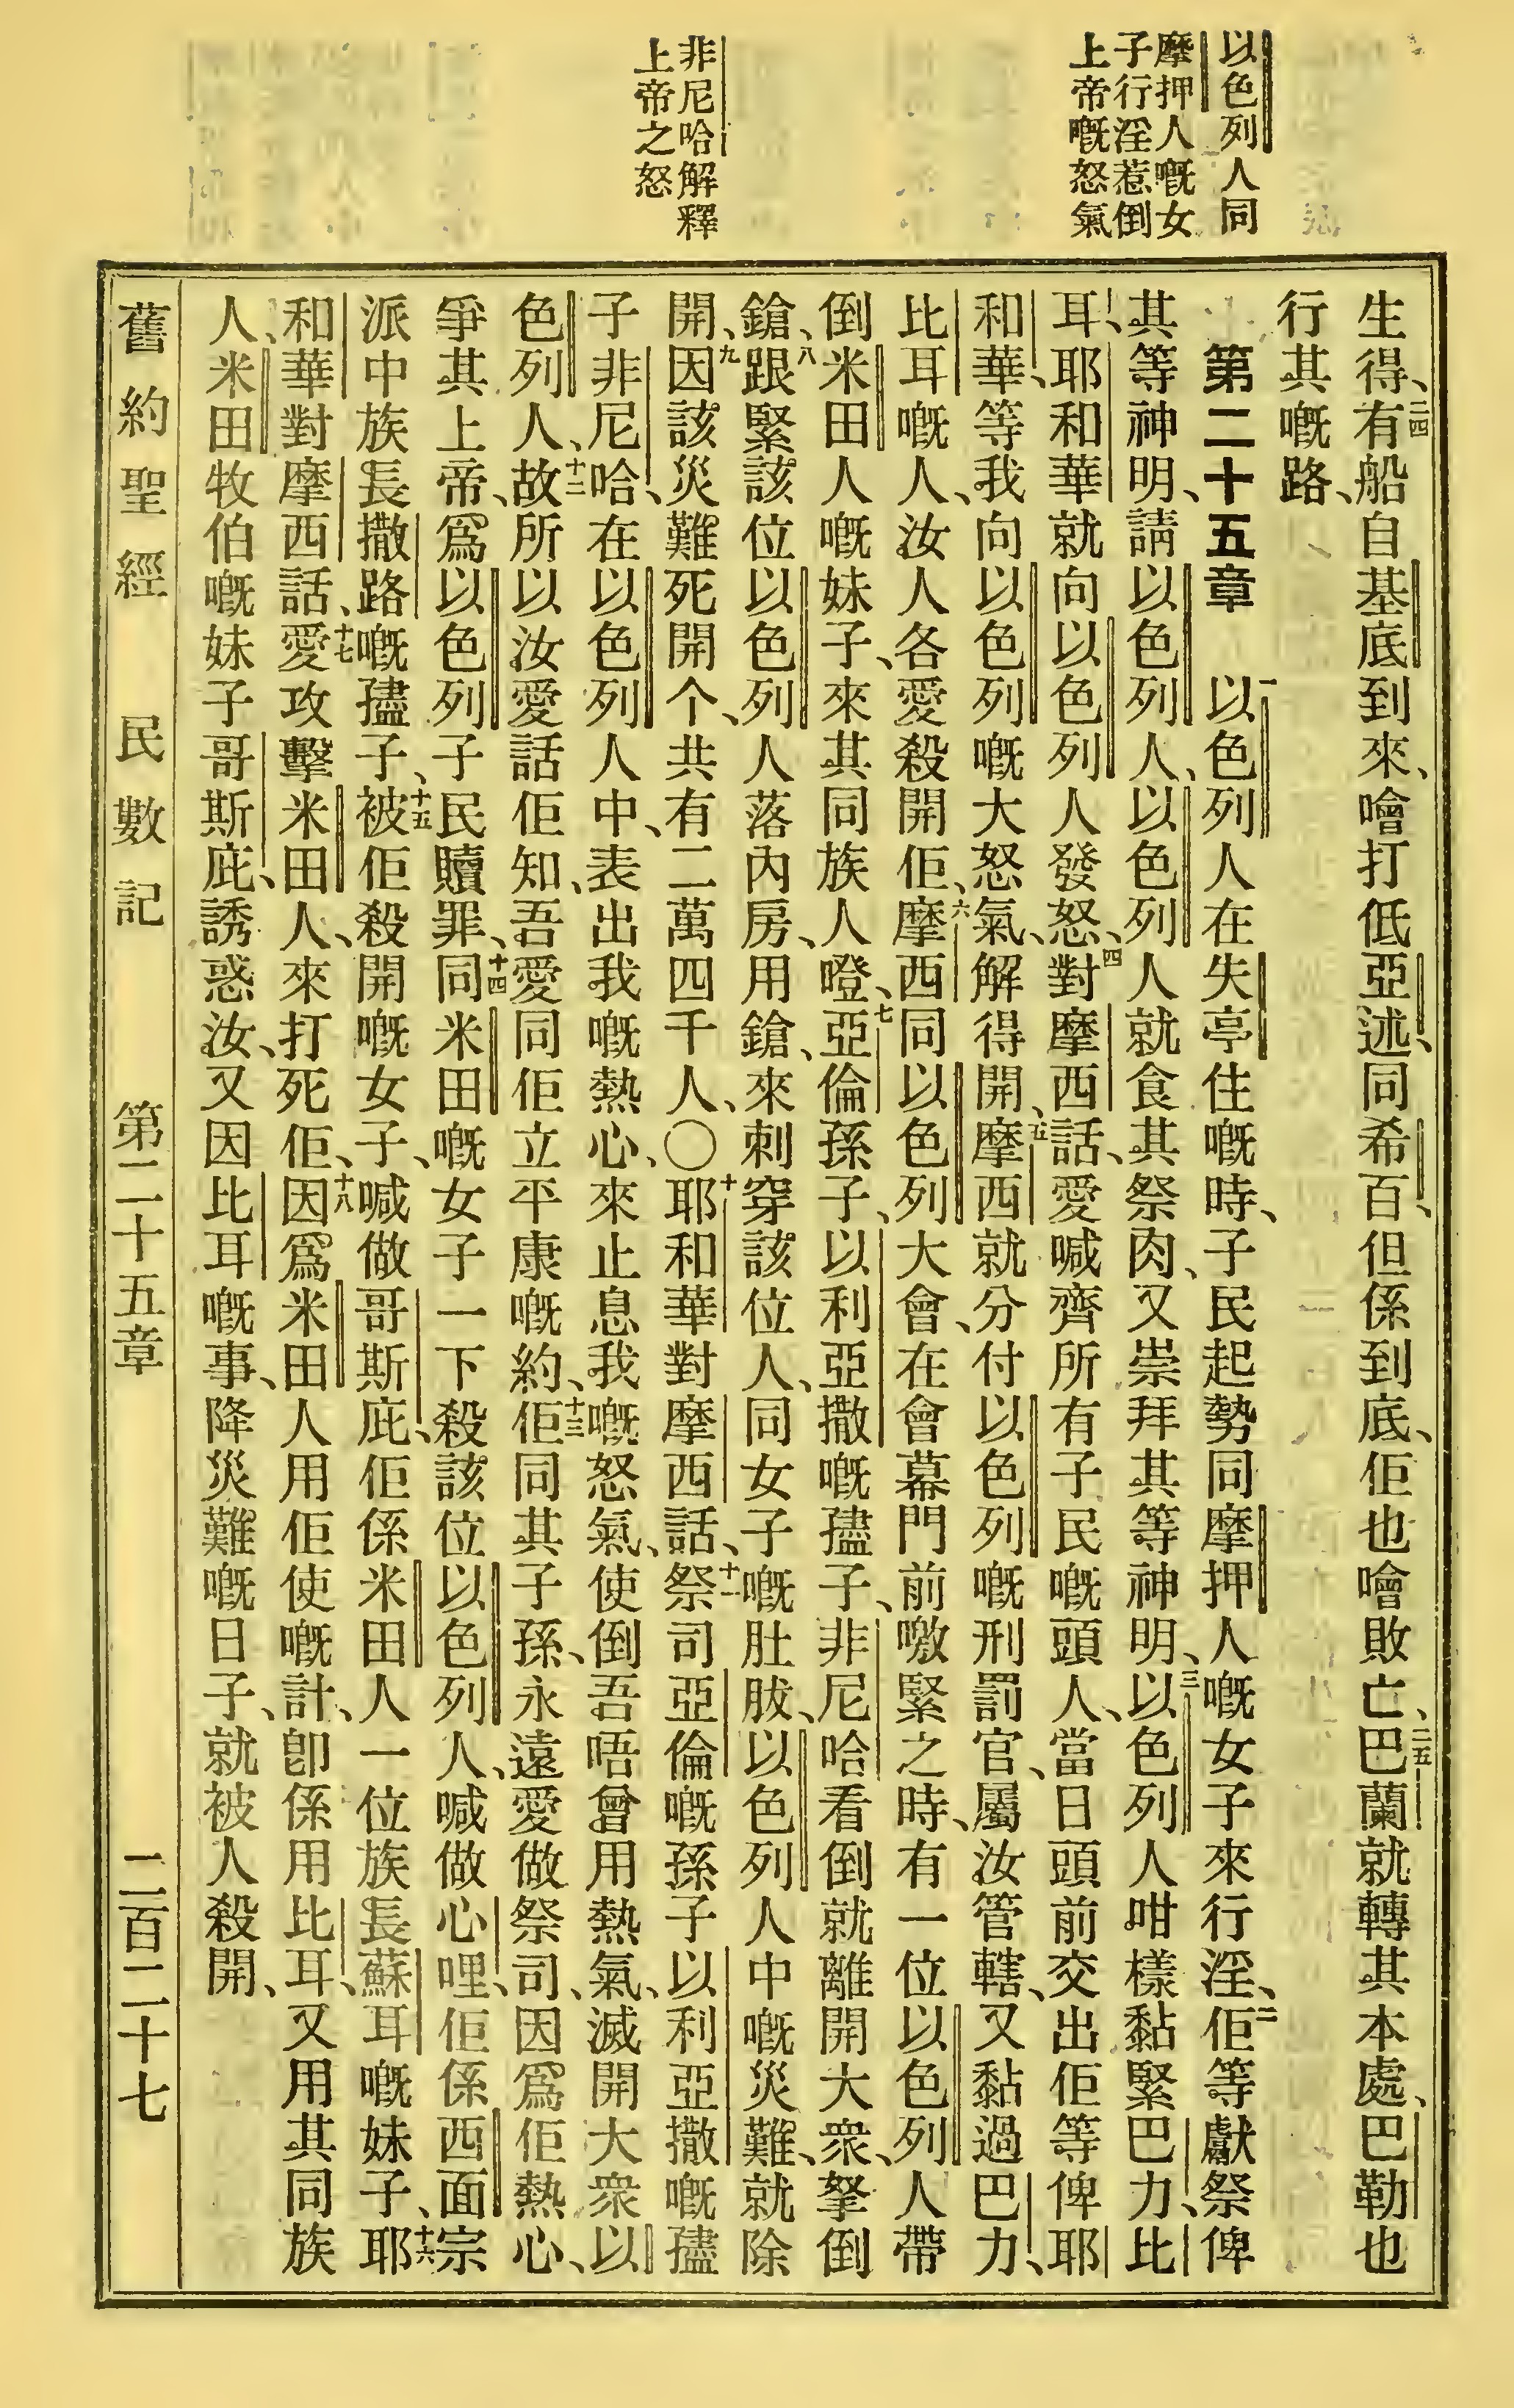 以色列人同
摩押人嘅女
子行淫惹倒
上帝嘅怒氣
非尼哈解釋
上帝之怒
生得、二四有船自基底到來、噲打低亞述、同希百、但係到底、佢也噲敗亡、二五巴蘭就轉其本處、巴勒也
行其嘅路、
第二十五章　一以色列人在失亭住嘅時、子民起勢同摩押人嘅女子來行淫、二佢等獻祭俾
其等神明、請以色列人、以色列人就食其祭肉、又崇拜其等神明、三以色列人咁樣黏緊巴力、比
耳、耶和華就向以色列人發怒、四對摩西話、愛喊齊所有子民嘅頭人、當日頭前交出佢等俾耶
和華、等我向以色列嘅大怒氣、解得開、五摩西就分付以色列嘅刑罰官、屬汝管轄、又黏過巴力、
比耳嘅人、汝人各愛殺開佢、六摩西同以色列大會、在會幕門前噭緊之時、有一位以色列人帶
倒米田人嘅妹子、來其同族人噔、七亞倫孫子、以利亞撒嘅孻子、非尼哈看倒就離開大衆、拏倒
鎗、八跟緊該位以色列人落內房、用鎗、來刺穿該位人、同女子嘅肚胈、以色列人中嘅災難、就除
開、九因該災難死開个、共有二萬四千人、〇十耶和華對摩西話、十一祭司亞倫嘅孫子以利亞撒嘅孻
子非尼哈、在以色列人中、表出我嘅熱心、來止息我嘅怒氣、使倒吾唔曾用熱氣、滅開大衆以
色列人、十二故所以汝愛話佢知、吾愛同佢立平康嘅約、十三佢同其子孫、永遠愛做祭司、因爲佢熱心、
爭其上帝、爲以色列子民贖罪、十四同米田嘅女子一下殺該位以色列人、喊做心哩、佢係西面宗
派中族長撒路嘅孻子、十五被佢殺開嘅女子、喊做哥斯庇、佢係米田人一位族長蘇耳嘅妹子、十六耶
和華對摩西話、十七愛攻擊米田人、來打死佢、十八因爲米田人用佢使嘅計、卽係用比耳、又用其同族
人、米田牧伯嘅妹子哥斯庇、誘惑汝、又因比耳嘅事、降災難嘅日子、就被人殺開、
舊約聖經　民數記　第二十五章　二百二十七